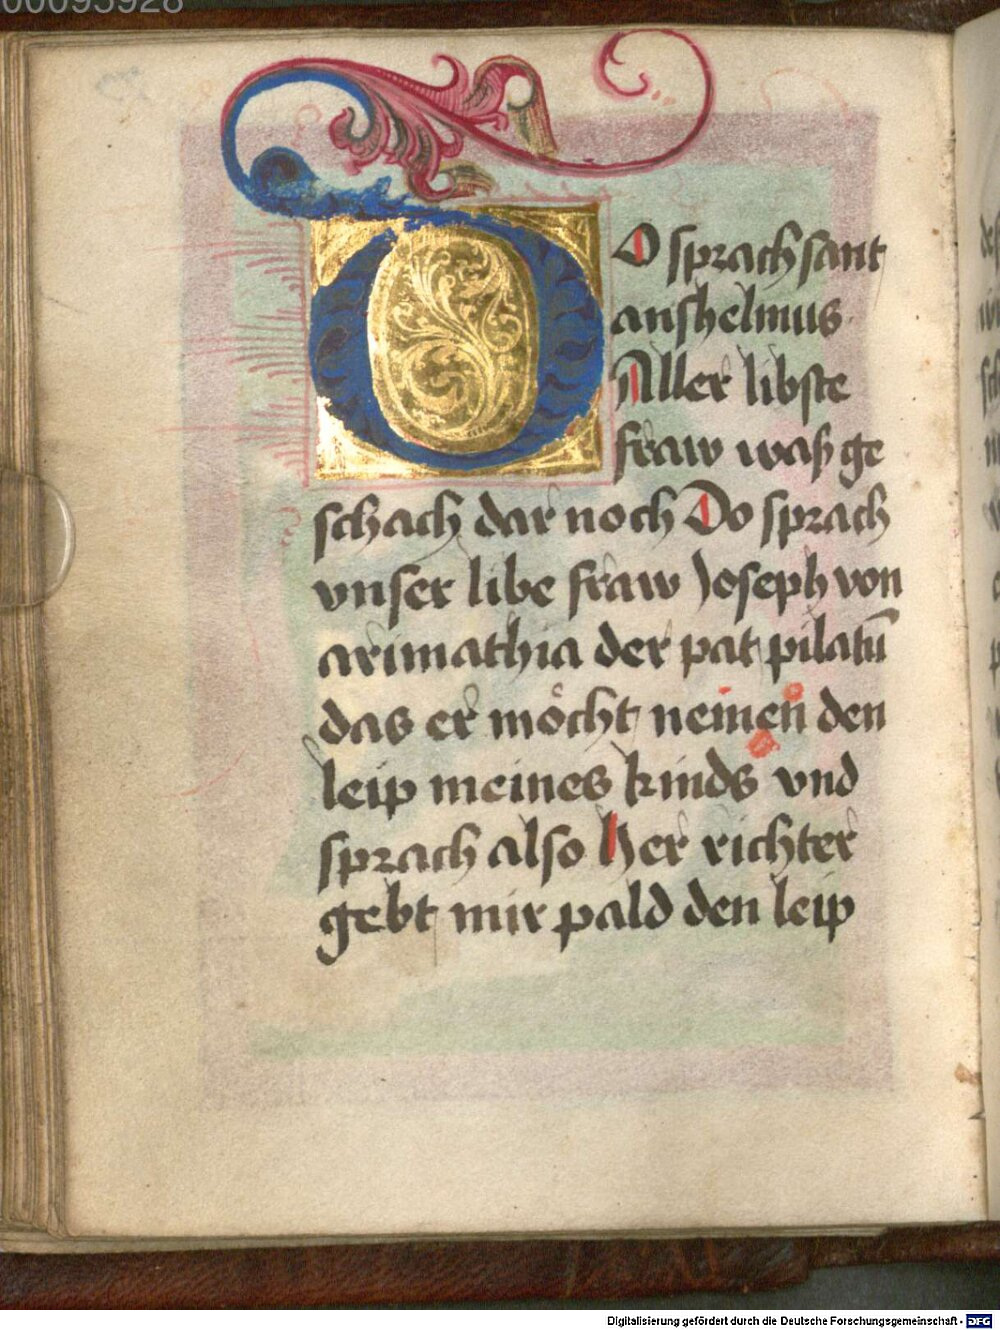 00095928
DO sprach sant
anshelmus
Aller libste
fraw waß ge
schach dar noch Do sprach
vnser libe fraw Joseph von
arimathia der pat pilatū
das er möcht nemen den
leip meines kinds vnd
sprach also Her richter
gebt mir pald den leip
Digitalisierung gefördert durch die Deutsche Forschungsgemeinschaft - DFG